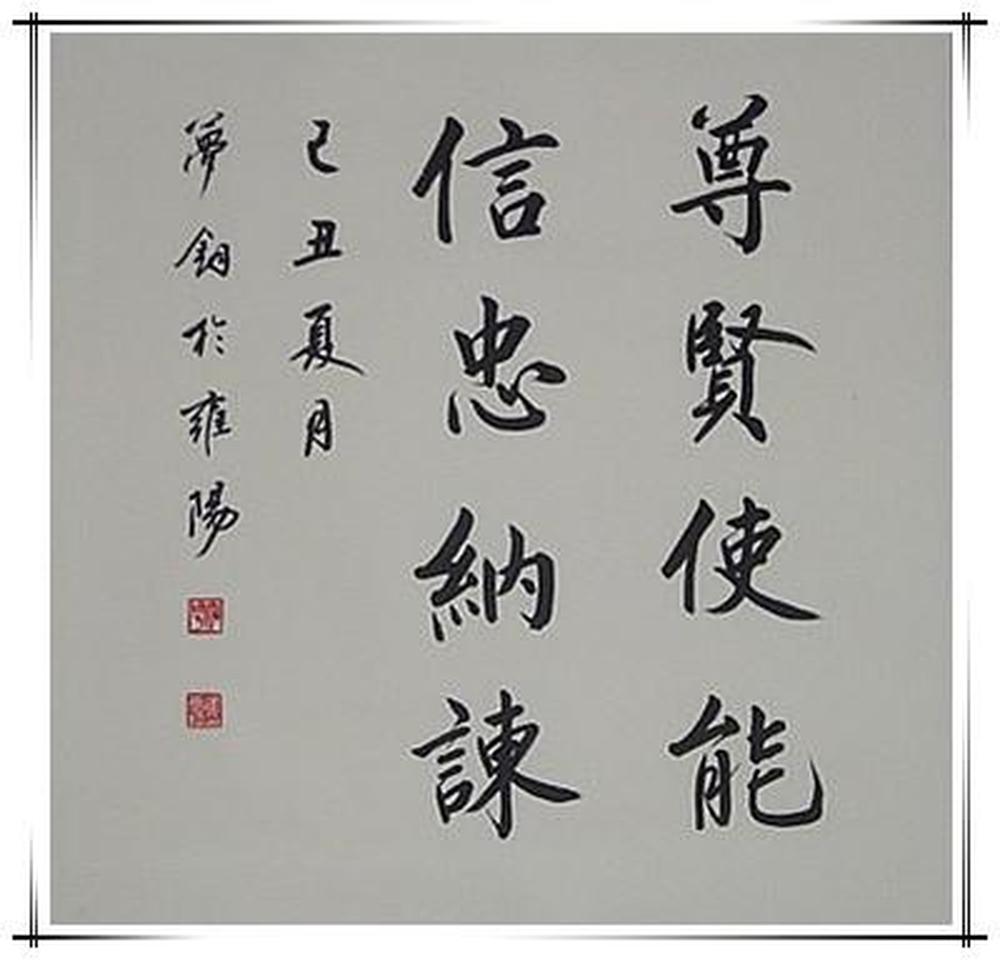 尊賢使能
信忠納諫
己丑夏月
夢鈅於雍陽